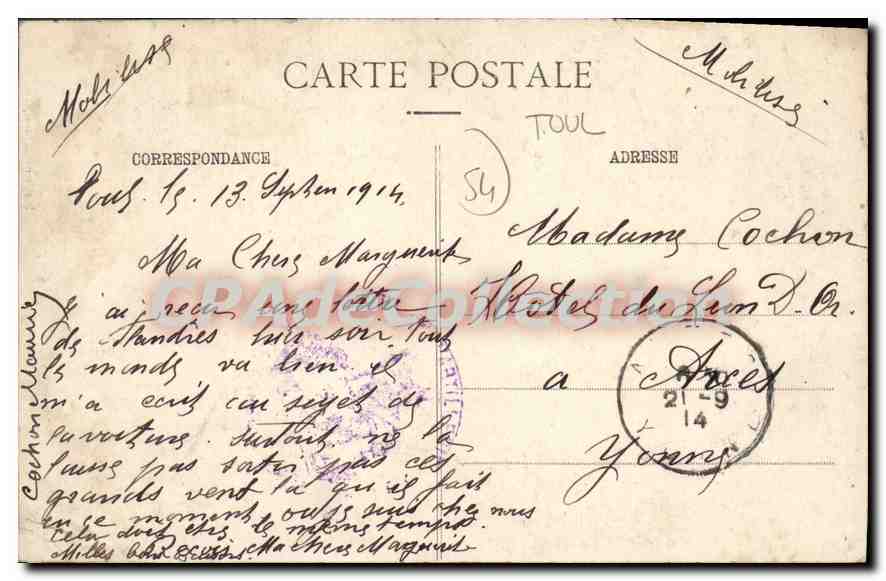 Mobilisé
CARTE POSTALE
Mobilisé
TOUL
CORRESPONDANCE
ADRESSE
54
Toul. le 13 Septem 1914
Ma Chere Marguerite
j'ai reçu une lettre
de hier soir. Tout
le monde va bien il
m'a ecrit au sujet de
la voiture. surtout ne la
laisse pas sortir par ces
grands vent la qu'il fait
en ce moment ou je suis chez nous
cela doit etre le meme temps.
Milles Ma chere Marguerite
Cochon Maurice
Madame Cochon
Hotel du Lion D.Or.
a Arces
Yonne
21-9
14
CPADeCollection